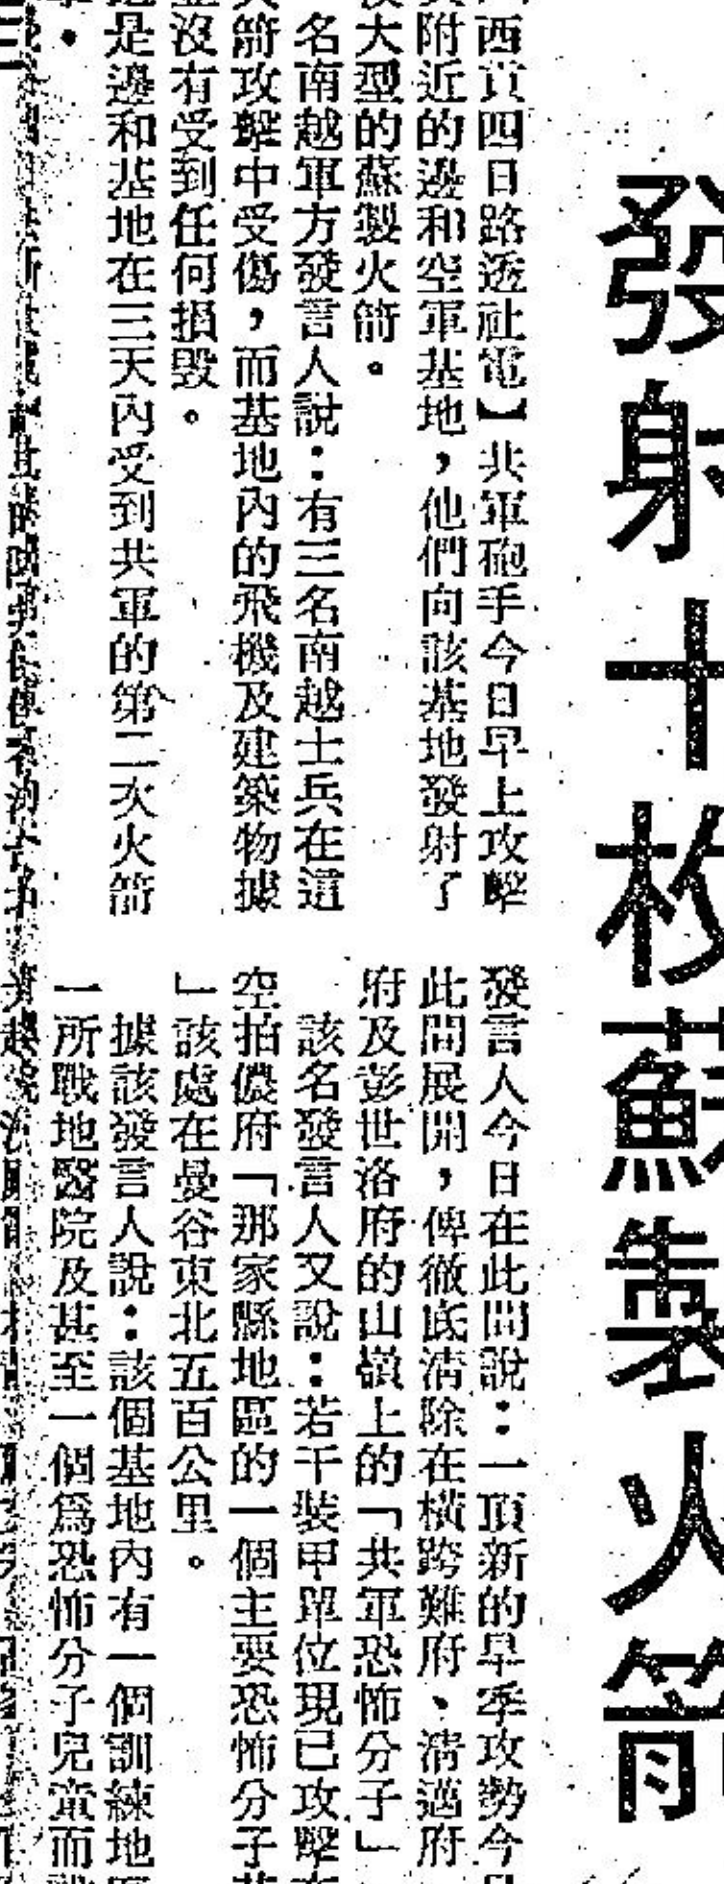 發射十枚蘇製火箭
西貢四日路透社電】共軍砲手今日早上攻擊
附近的邊和空軍基地，他們向該基地發射了
大型的蘇製火箭。
名南越軍方發言人說：有三名南越士兵在這
箭攻擊中受傷，而基地內的飛機及建築物據
沒有受到任何損毀。
是邊和基地在三天內受到共軍的第二次火箭
發言人今日在此間說：一項新的旱季攻勢今
此間展開，俾徹底清除在橫跨難府、清邁府
府及彭世洛府的山嶺上的「共軍恐怖分子」
該名發言人又說：若干裝甲單位現已攻擊
空拍儂府「那家縣地區的一個主要恐怖分子
」該處在曼谷東北五百公里。
據該發言人說：該個基地內有一個訓練地
一所戰地醫院及甚至一個為恐怖分子兒童而